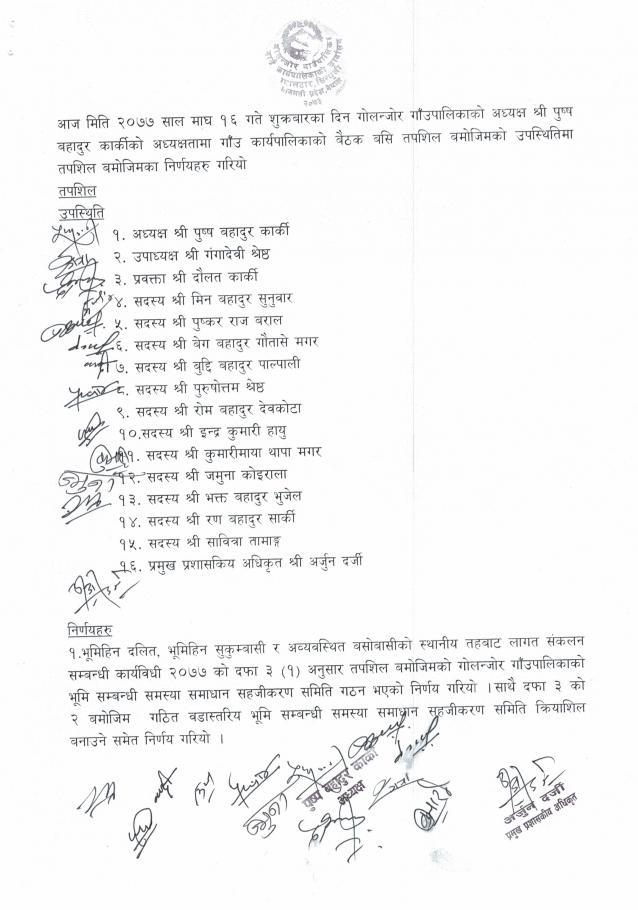 २०७३
आज मिति २०७७ साल माघ १६ गते शुक्रबारका दिन गोलन्जोर गाँउपालिकाको अध्यक्ष श्री पुष्प
बहादुर कार्कीको अध्यक्षतामा गाँउ कार्यपालिकाको बैठक बसि तपशिल बमोजिमको उपस्थितिमा
तपशिल बमोजिमका निर्णयहरु गरियो
तपशिल
उपस्थिति
१. अध्यक्ष श्री पुष्प बहादुर कार्की
२. उपाध्यक्ष श्री गंगादेवी श्रेष्ठ
३. प्रवक्ता श्री दौलत कार्की
४. सदस्य श्री मिन बहादुर सुनुवार
५. सदस्य श्री पुष्कर राज बराल
६. सदस्य श्री बेग बहादुर गौतासे मगर
७. सदस्य श्री बुद्दि बहादुर पाल्पाली
८. सदस्य श्री पुरुषोत्तम श्रेष्ठ
९. सदस्य श्री रोम बहादुर देवकोटा
१०.सदस्य श्री इन्द्र कुमारी हायु
११. सदस्य श्री कुमारीमाया थापा मगर
१२. सदस्य श्री जमुना कोइराला
१३. सदस्य श्री भक्त बहादुर भुजेल
१४. सदस्य श्री रण बहादुर सार्की
१५. सदस्य श्री सावित्रा तामाङ्ग
१६. प्रमुख प्रशासकिय अधिकृत श्री अर्जुन दर्जी
निर्णयहरु
१.भूमिहिन दलित, भूमिहिन सुकुम्वासी र अव्यवस्थित बसोबासीको स्थानीय तहबाट लागत संकलन
सम्बन्धी कार्यविधी २०७७ को दफा ३ (१) अनुसार तपशिल बमोजिमको गोलन्जोर गाँउपालिकाको
भूमि सम्बन्धी समस्या समाधान सहजीकरण समिति गठन भएको निर्णय गरियो ।साथै दफा ३ को
२ बमोजिम गठित वडास्तरिय भूमि सम्बन्धी समस्या समाधान सहजीकरण समिति क्रियाशिल
बनाउने समेत निर्णय गरियो ।
पुष्प बहादुर कार्की
अध्यक्ष
अर्जुन दर्जी
प्रमुख प्रशासकीय अधिकृत